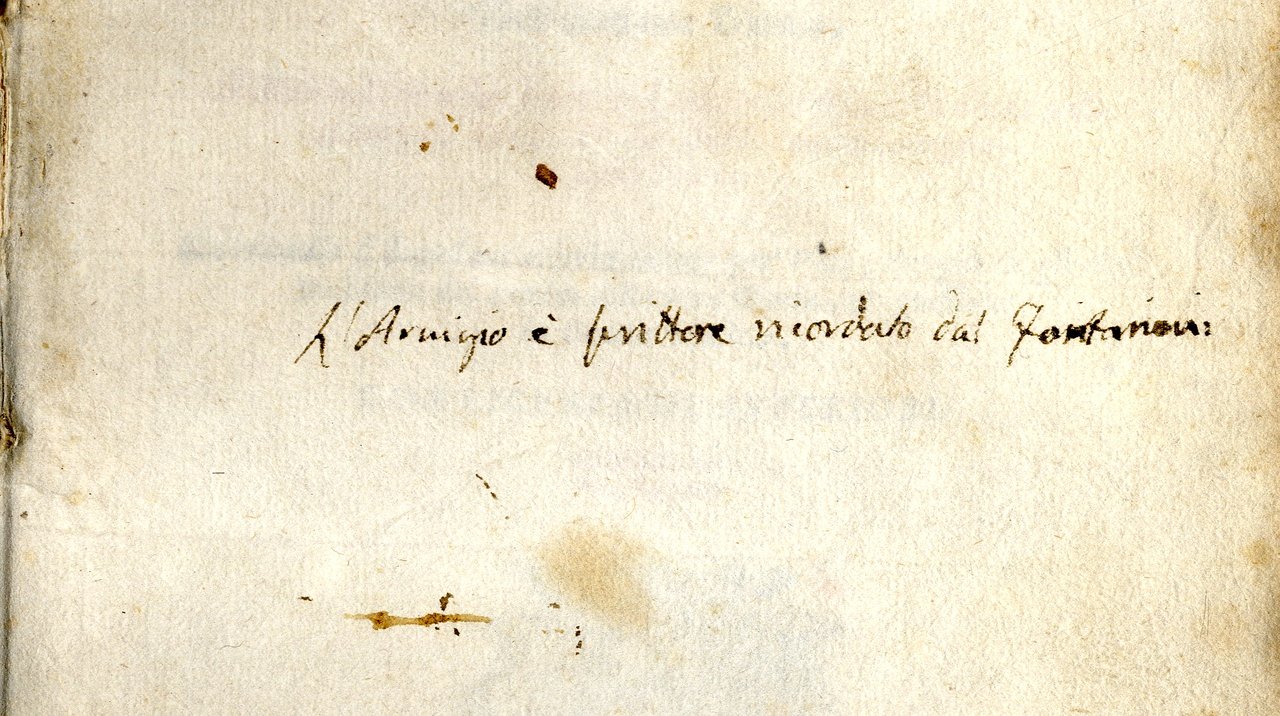 L'Arnigio è scrittore ricordato dal Fontanini: